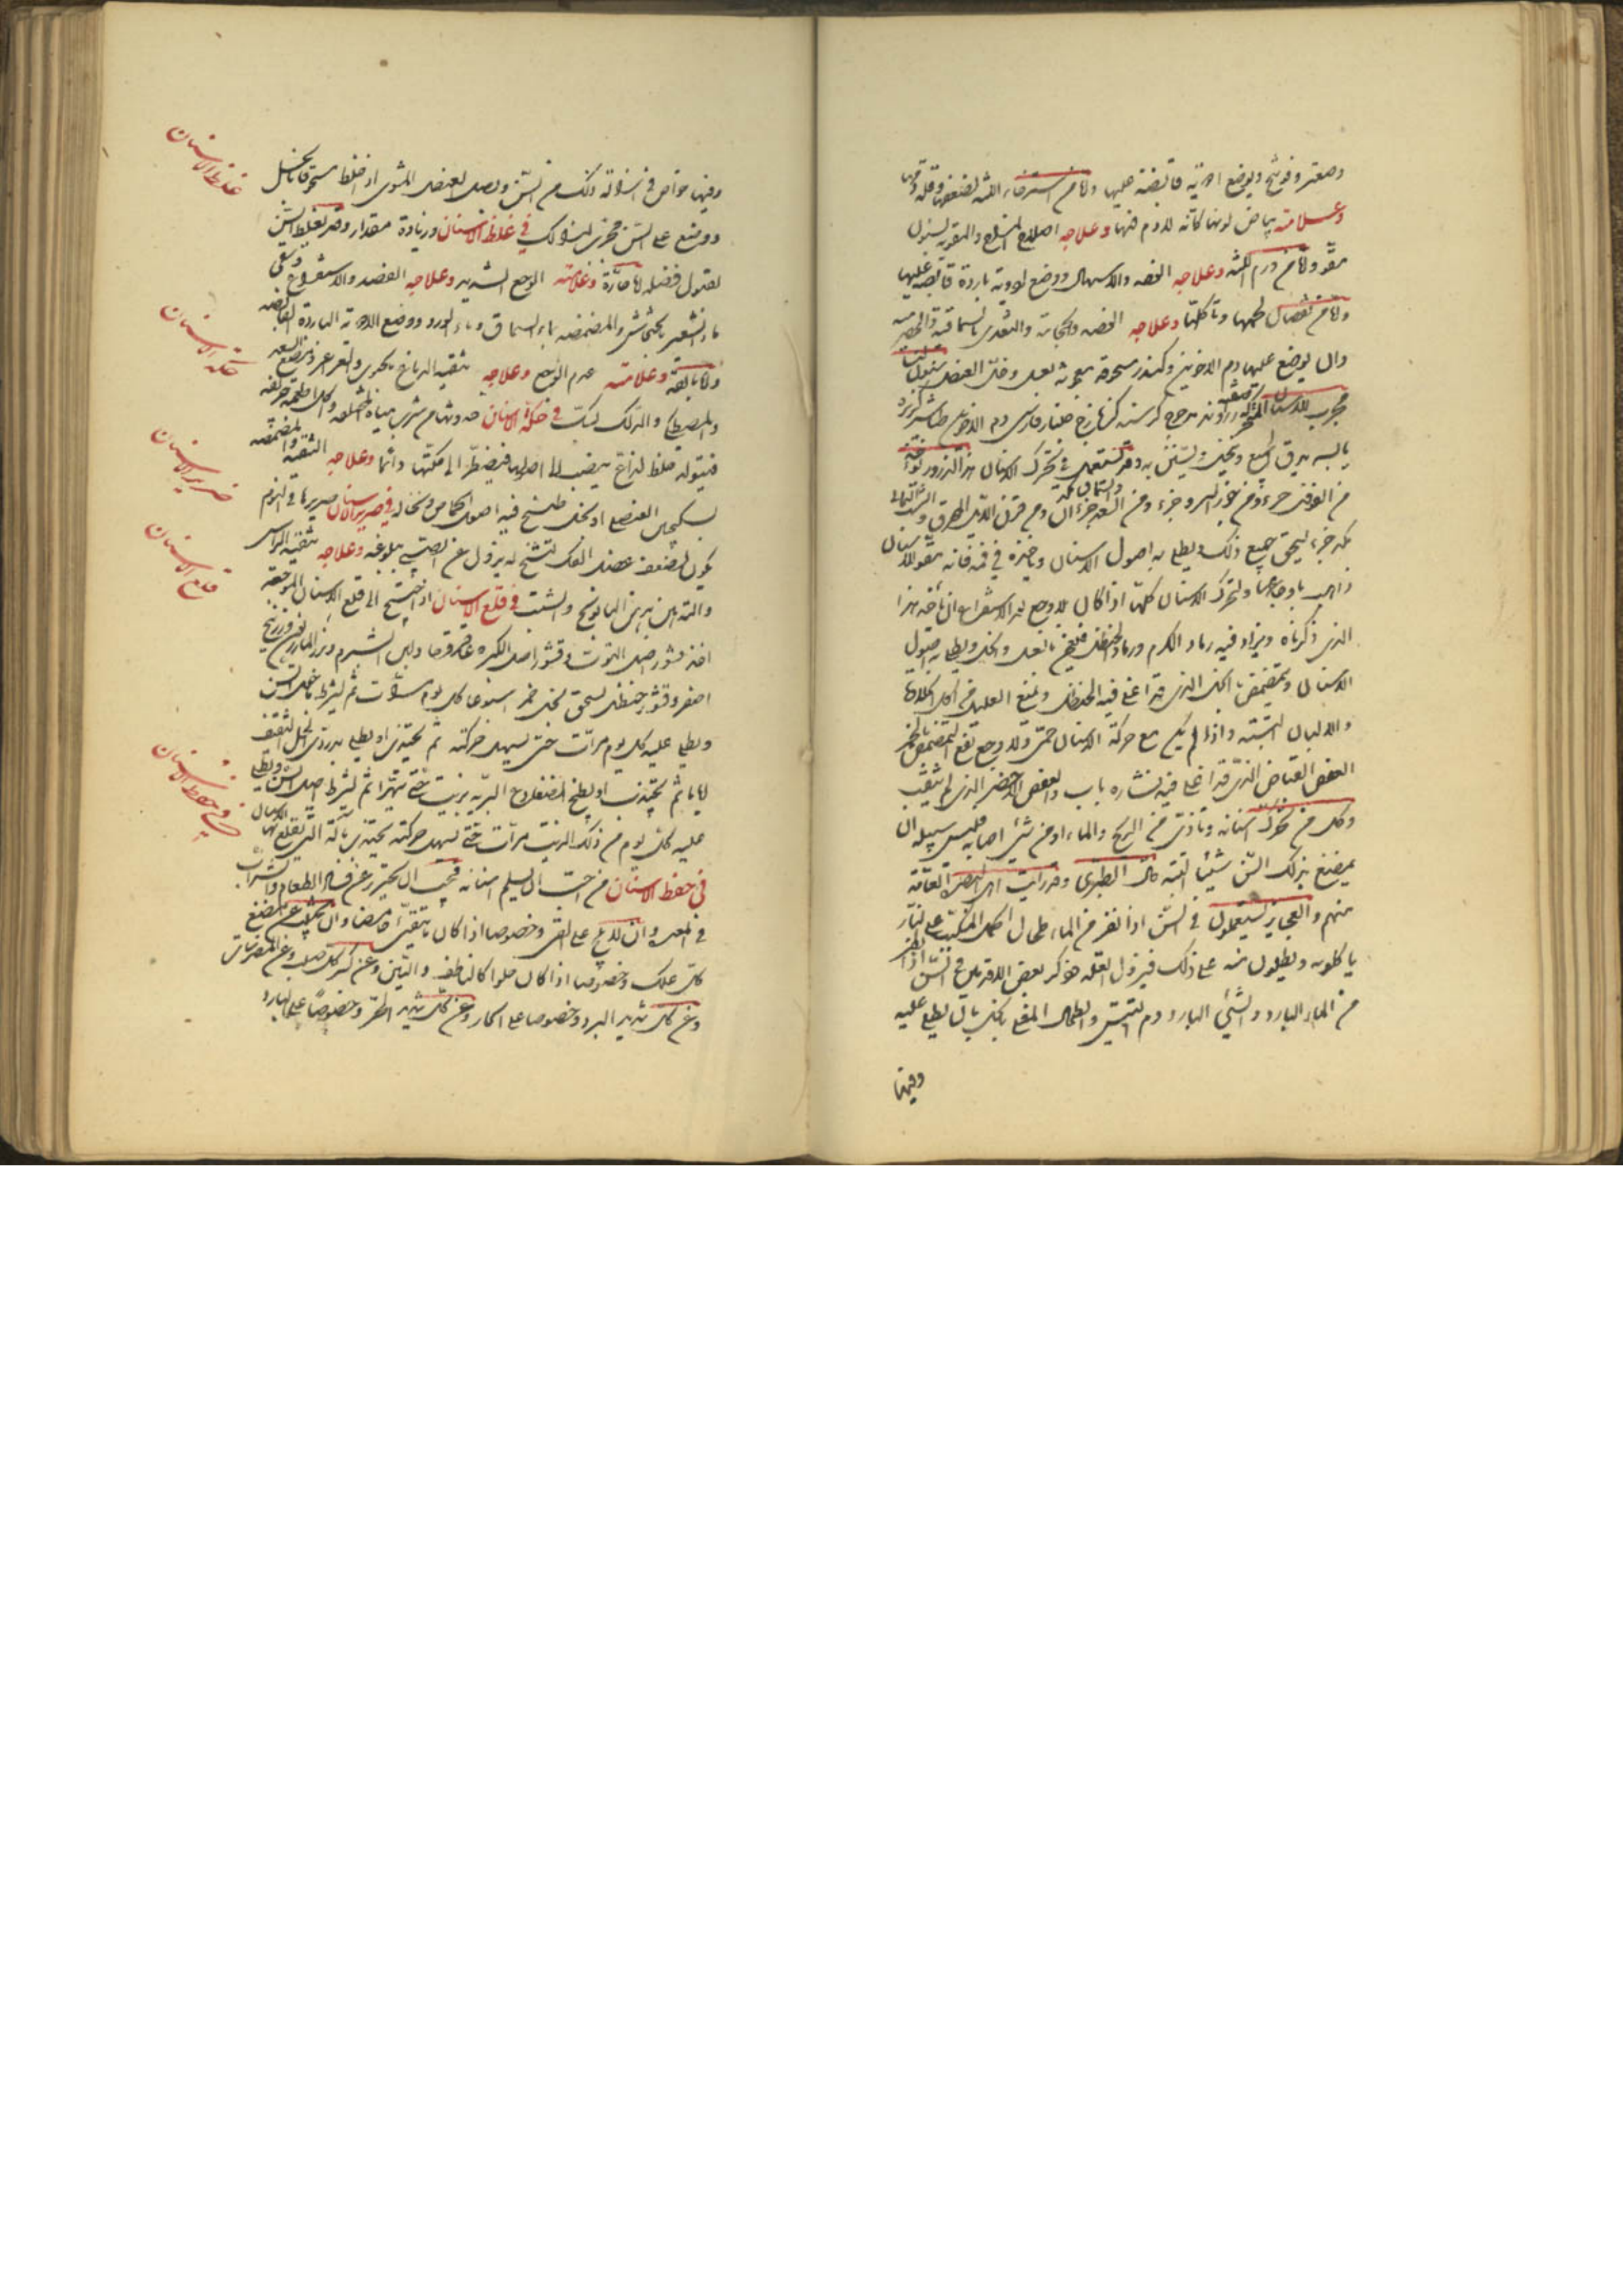 وصعتر وفوتنج ويوضع ادوية قابضة عليها واما من استرخاء اللثه لضعفها وقلة دمها
وعلامته بياض لونها كانه لا دم فيها وعلاجه اصلاح المزاج والتقويه
واما من ورم اللثه وعلاجه الفصد والاسهال ووضع ادوية باردة قابضه عليها
واما من نقصان لحمها وتأكلها وعلاجه الفصد والحجامة والتغذى بالسماقية والحصرمية
وان يوضع عليها دم الاخوين وكندر مسحوقه معجونه بعسل وخل العنصل
مجرب للاسنان المتحركة زراوند مدحرج كرسنه جلنار فارسى دم الاخوين طباشير
يابسه يدق الجميع وينخل ويستن به وقد يستعمل فى تحرك الاسنان هذا الذرور يؤخذ
من العفص جزء ومن بزر الورد جزء ومن السعد جزءان ومن قرن الايل المحرق والشب اليمانى
جزء يسحق جميع ذلك ويطلى به اصول الاسنان وخيره فى فمه فانه مقو للاسنان
ذاهب باوجاعها ولتحرك الاسنان كلها اذا كان بلا وجع بعد الاستفراغ ان ياخذ هذا
الذى ذكرناه ويزاد فيه رماد الكرم ورماد الحنظل فيعجن بالعسل والخل ويطلى به اصول
الاسنان ويتمضمض بالخل الذى قد اغلى فيه الحنظل ويمنع العليل من اكل الحلاوة
والالبان البتة واذا لم يكن مع حركة الاسنان حمى ولا وجع نفع التمضمض بالخمر
العفص القابض الذى قد اغلى فيه نشاره باب والعفص الاخضر الذى لم يثقب
وكل من تحركت اسنانه وتأذى من الريح والماء او من شىء اصابه فليس سبيله ان
يمضغ بذلك السن شيئا البته قال الطبرى وقد رأيت اهل البصرة العامة
منهم والعجايز يستعملون فى السن اذا نفر من الماء طحال الحمل المكبب على النار
ياكلونه ويطبقون فمه على ذلك فيزول العلة هو ذكر بعض الاقدمين فى السن اذا نفر
من الماء البارد والشىء البارد ودم التيس والطحال المغلى بالخل بان يطلى عليه
وفيها
وفيها خواص فى ازالة ذلك من السن وبصل العنصل المشوى اذا خلط مسحوقا بالخل
ووضع على السن مجرب لذلك فى غلظ الاسنان وزيادة مقدار وقد يغلظ السن
لقبول فضله اما حارة وعلامته الوجع الشديد وعلاجه الفصد والاستفراغ
ماء الشعير بالخشخاش والمضمضه بماء السماق وماء الورد ووضع الادوية الباردة القابضه
واما بالغه وعلامته عدم الوجع وعلاجه تنقية الدماغ
والمصطكى والدلك بالشب فى حكة الاسنان حدوثها من شرب مياه مختلفه واكل اطعمه حريفه
فيتولد خلط لذاع ينصب الى اصولها فيضطر الى حكتها دائما وعلاجه التنقيه والمضمضه
بسكنجبين العنصلى او بخل طبخ فيه اصول الحماض ونخاله فى صرير الاسنان صريرها فى النوم
يكون لضعف عضل الفك لتشنج له يزول عن الصبى ببلوغه وعلاجه تنقيه الرأس
والتدهين بدهن البابونج والشبت فى قلع الاسنان اذا احتيج الى قلع الاسنان الموجعه
اخذ قشور اصل التوت وقشور اصل الكبر وعاقرقرحا ولبن الشبرم وبزر المازريون وزرنيخ
اصفر وقشور حنظل يسحق بخل خمر اسبوعا كل يوم مرات ثم يشرط ما حول السن
ويطلى عليه كل يوم مرات حتى يسهل حركته ثم يجتذب او يطلى بدردى الخل الثقيف
اياما ثم يجتذب او يطبخ الضفادع البريه بزيت حتى تتهرا ثم يشرط اصل السن ويطلى
عليه كل يوم من ذلك الزيت مرات حتى يسهل حركته يجتذب بآلة التى تقلع بها الاسنان
فى حفظ الاسنان من احب ان يسلم اسنانه فيجب ان يحترز عن فساد الطعام والشراب
فى المعده وان لا يلح على القى وخصوصا اذا كان ما يتقيئ حامضا وان يجتنب عن مضغ
كل علك وخصوصا اذا كان حلوا كالناطف والتين وعن كسر كل صلب وعن المضرسات
وعن كل شديد البرد وخصوصا على الحار وعن كل شديد الحر وخصوصا على البارد
غلظ الاسنان
حكة الاسنان
ضرير الاسنان
قلع الاسنان
فى حفظ الاسنان